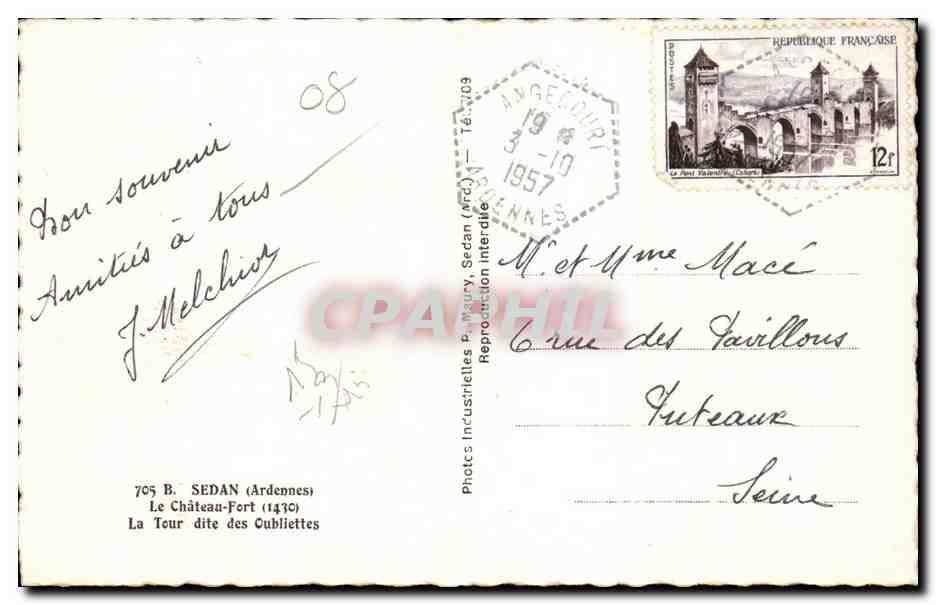 08
Bon souvenir
Amitiés à tous
J. Melchior
705 B. SEDAN (Ardennes)
Le Château-Fort (1430)
La Tour dite des Oubliettes
Photos Industrielles P. Maury, Sedan (Ard.) — Tél. 709
Reproduction Interdite
ANGECOURT
19 H
3 -10
1957
ARDENNES
POSTES
REPUBLIQUE FRANÇAISE
Le Pont Valentré (Cahors)
12f
CPAPHIL
Mr et Mme Macé
6 rue des Pavillons
Puteaux
Seine